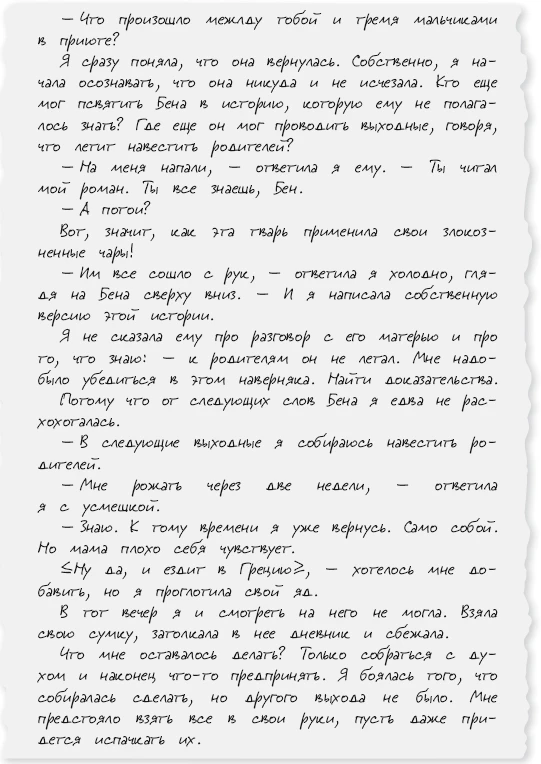 — Что произошло межлду тобой и тремя мальчиками
в приюте?
Я сразу поняла, что она вернулась. Собственно, я на-
чала осознавать, что она никуда и не исчезала. Кто еще
мог псвятить Бена в историю, которую ему не полага-
лось знать? Где еще он мог проводить выходные, говоря,
что летит навестить родителей?
— На меня напали, — ответила я ему. — Ты читал
мой роман. Ты все знаешь, Бен.
— А потои?
Вот, значит, как эта тварь применила свои злокоз-
ненные чары!
— Им все сошло с рук, — ответила я холодно, гля-
дя на Бена сверху вниз. — И я написала собственную
версию этой истории.
Я не сказала ему про разговор с его матерью и про
то, что знаю: — к родителям он не летал. Мне надо-
было убедиться в этом наверняка. Найти доказательства.
Потому что от следующих слов Бена я едва не рас-
хохоталась.
— В следующие выходные я собираюсь навестить ро-
дителей.
— Мне рожать через две недели, — ответила
я с усмешкой.
— Знаю. К тому времени я уже вернусь. Само собой.
Но мама плохо себя чувствует.
≤Ну да, и ездит в Грецию≥, — хотелось мне до-
бавить, но я проглотила свой яд.
В тот вечер я и смотреть на него не могла. Взяла
свою сумку, затолкала в нее дневник и сбежала.
Что мне оставалось делать? Только собраться с ду-
хом и наконец что-то предпринять. Я боялась того, что
собиралась сделать, но другого выхода не было. Мне
предстояло взять все в свои руки, пусть даже при-
дется испачкать их.